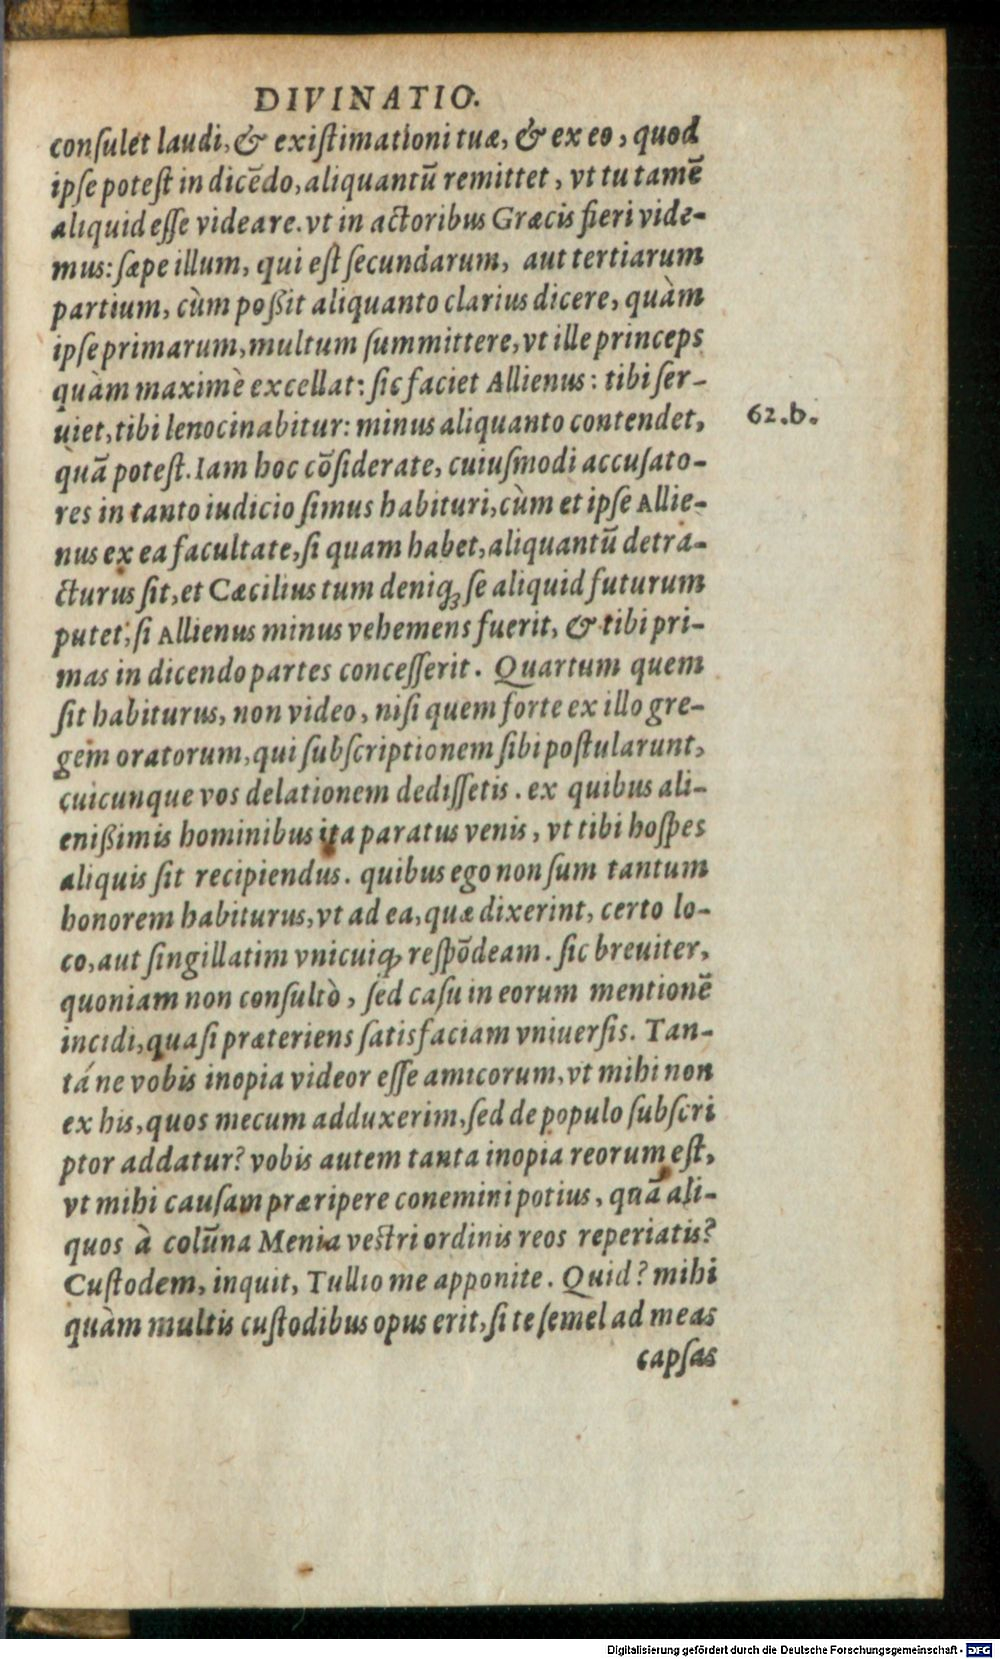 DIVINATIO.
conſulet laudi, & exiſtimationi tuæ, & ex eo, quod
ipſe poteſt in dicēdo, aliquantū remittet, vt tu tamē
aliquid eſſe videare. vt in actoribus Græcis fieri vide-
mus: ſæpe illum, qui eſt ſecundarum, aut tertiarum
partium, cùm poßit aliquanto clarius dicere, quàm
ipſe primarum, multum ſummittere, vt ille princeps
quàm maximè excellat: ſic faciet Allienus: tibi ſer-
uiet, tibi lenocinabitur: minus aliquanto contendet,
62.b.
quā poteſt. Iam hoc cōſiderate, cuiuſmodi accuſato-
res in tanto iudicio ſimus habituri, cùm et ipſe Allie-
nus ex ea facultate, ſi quam habet, aliquantū detra-
cturus ſit, et Cæcilius tum deniq; ſe aliquid futurum
putet, ſi Allienus minus vehemens fuerit, & tibi pri-
mas in dicendo partes conceſſerit. Quartum quem
ſit habiturus, non video, niſi quem forte ex illo gre-
gem oratorum, qui ſubſcriptionem ſibi poſtularunt,
cuicunque vos delationem dediſſetis. ex quibus ali-
enißimis hominibus ita paratus venis, vt tibi hoſpes
aliquis ſit recipiendus. quibus ego non ſum tantum
honorem habiturus, vt ad ea, quæ dixerint, certo lo-
co, aut ſingillatim vnicuiq; reſpōdeam. ſic breuiter,
quoniam non conſultò, ſed caſu in eorum mentionē
incidi, quaſi præteriens ſatisfaciam vniuerſis. Tan-
táne vobis inopia videor eſſe amicorum, vt mihi non
ex his, quos mecum adduxerim, ſed de populo ſubſcri
ptor addatur? vobis autem tanta inopia reorum eſt,
vt mihi cauſam præripere conemini potius, quā ali-
quos à colūna Menia veſtri ordinis reos reperiatis?
Cuſtodem, inquit, Tullio me apponite. Quid? mihi
quàm multis cuſtodibus opus erit, ſi te ſemel ad meas
capſas
Digitalisierung gefördert durch die Deutsche Forschungsgemeinschaft - DFG